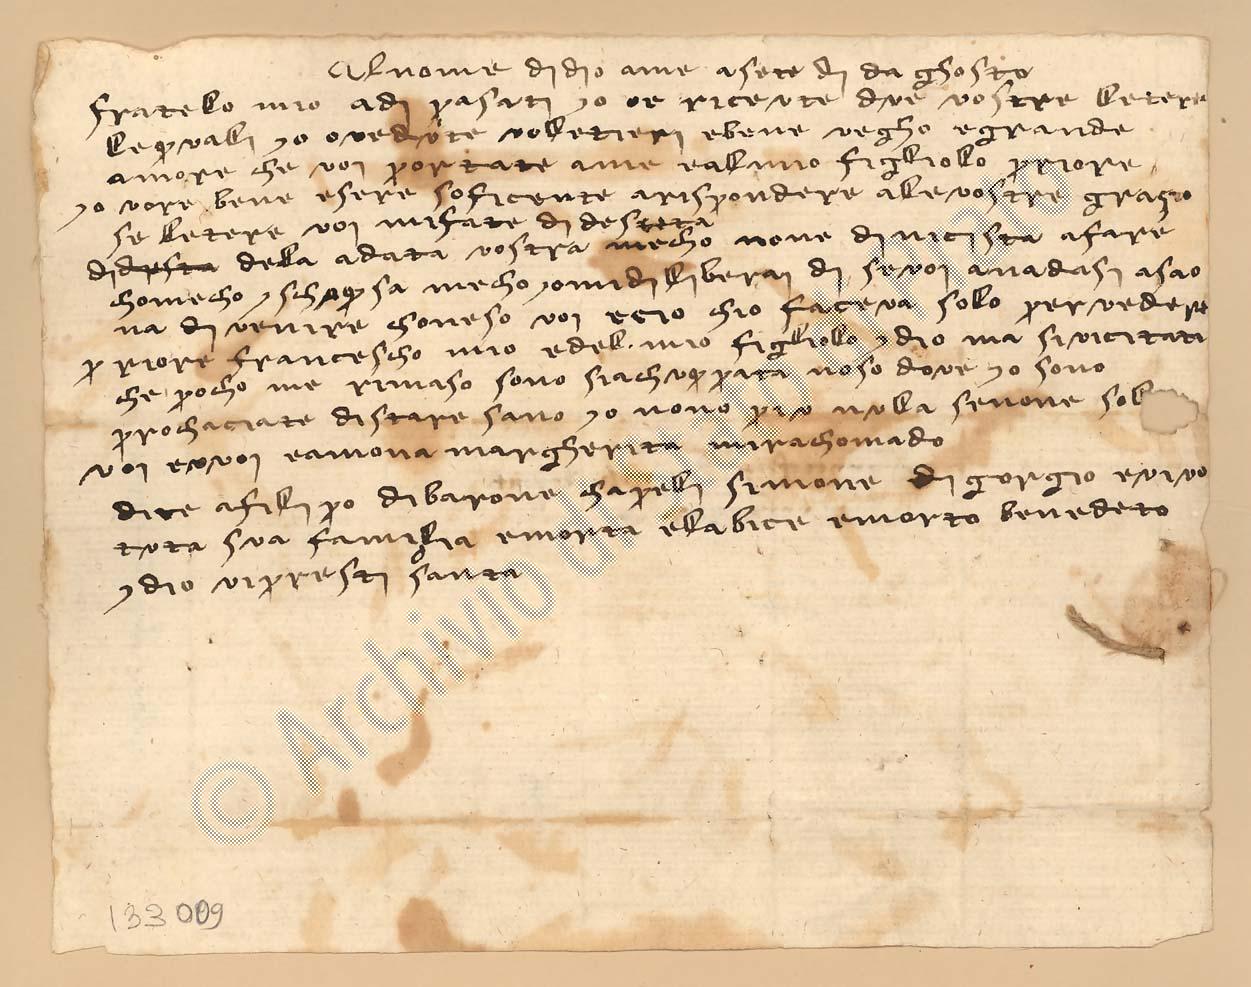 Al nome di dio ame a sete di da ghosto
fratelo mio adi pasati yo oe ricevte dve vostre letere
leqvali yo o vedvte volletieri e bene vegho e grande
amore che voi portate ame e al mio figliolo priore
yo vore bene esere soficente arispondere ale vostre grazio
se letere voi mi fate di desteta
didesta dela adata vostra mecho none di nicista afare
chomecho y schqvsa mecho yo mi diliberai di se voi anadasi asao
na di venire choneso voi e cio chio faceva solo per vedere
priore francescho mio e del mio figliolo ydio ma si vicitati
che pocho me rimaso sono siachvpita noso dove yo sono
prochaciate distare sano yo nono piv nvlla senone sol
voi e vvoi e a mona margherita mirachomado
dite a filipo di barone chapeli simone di gorgio e vivo
tvta sva famiglia e morta e la bice e morto benedeto
ydio vi presti santa
133 009
© Archivio di Stato di Prato